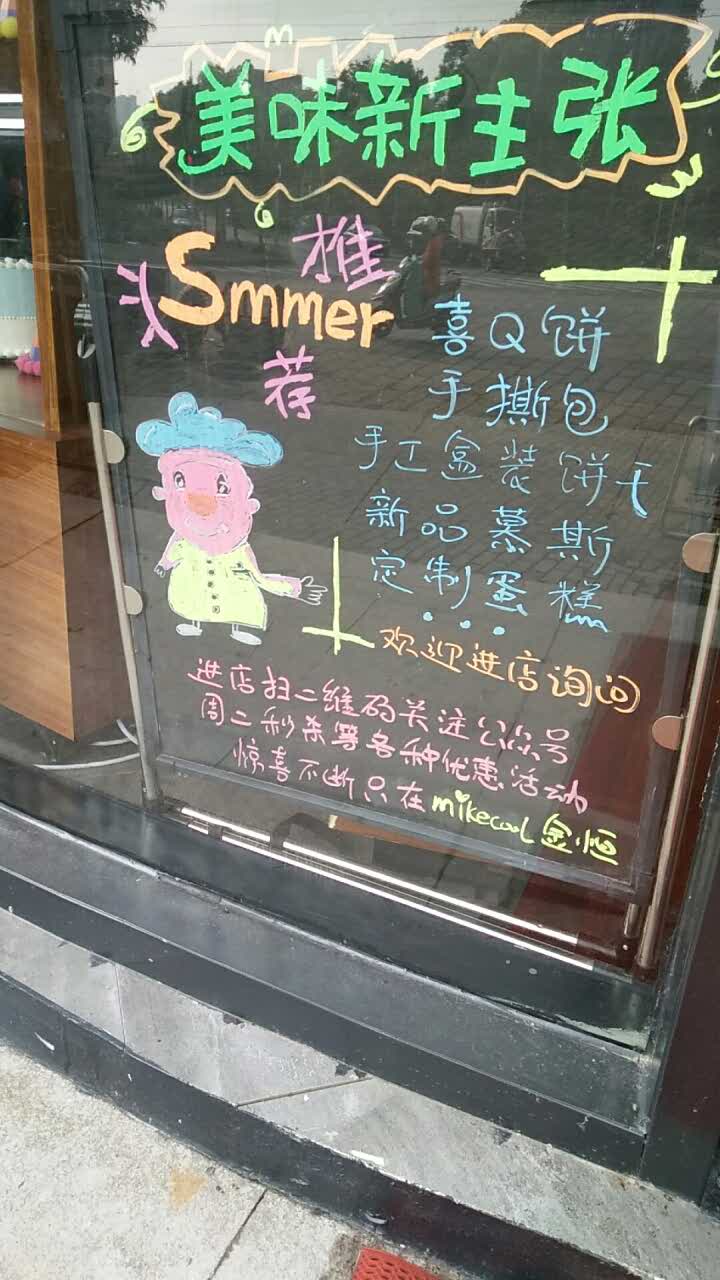 美味新主张
Smmer
推
荐
喜Q饼
手撕包
手工盒装饼干
新品慕斯
定制蛋糕
...
欢迎进店询问
进店扫二维码关注公众号
周二秒杀等各种优惠活动
惊喜不断只在mikecool金恒